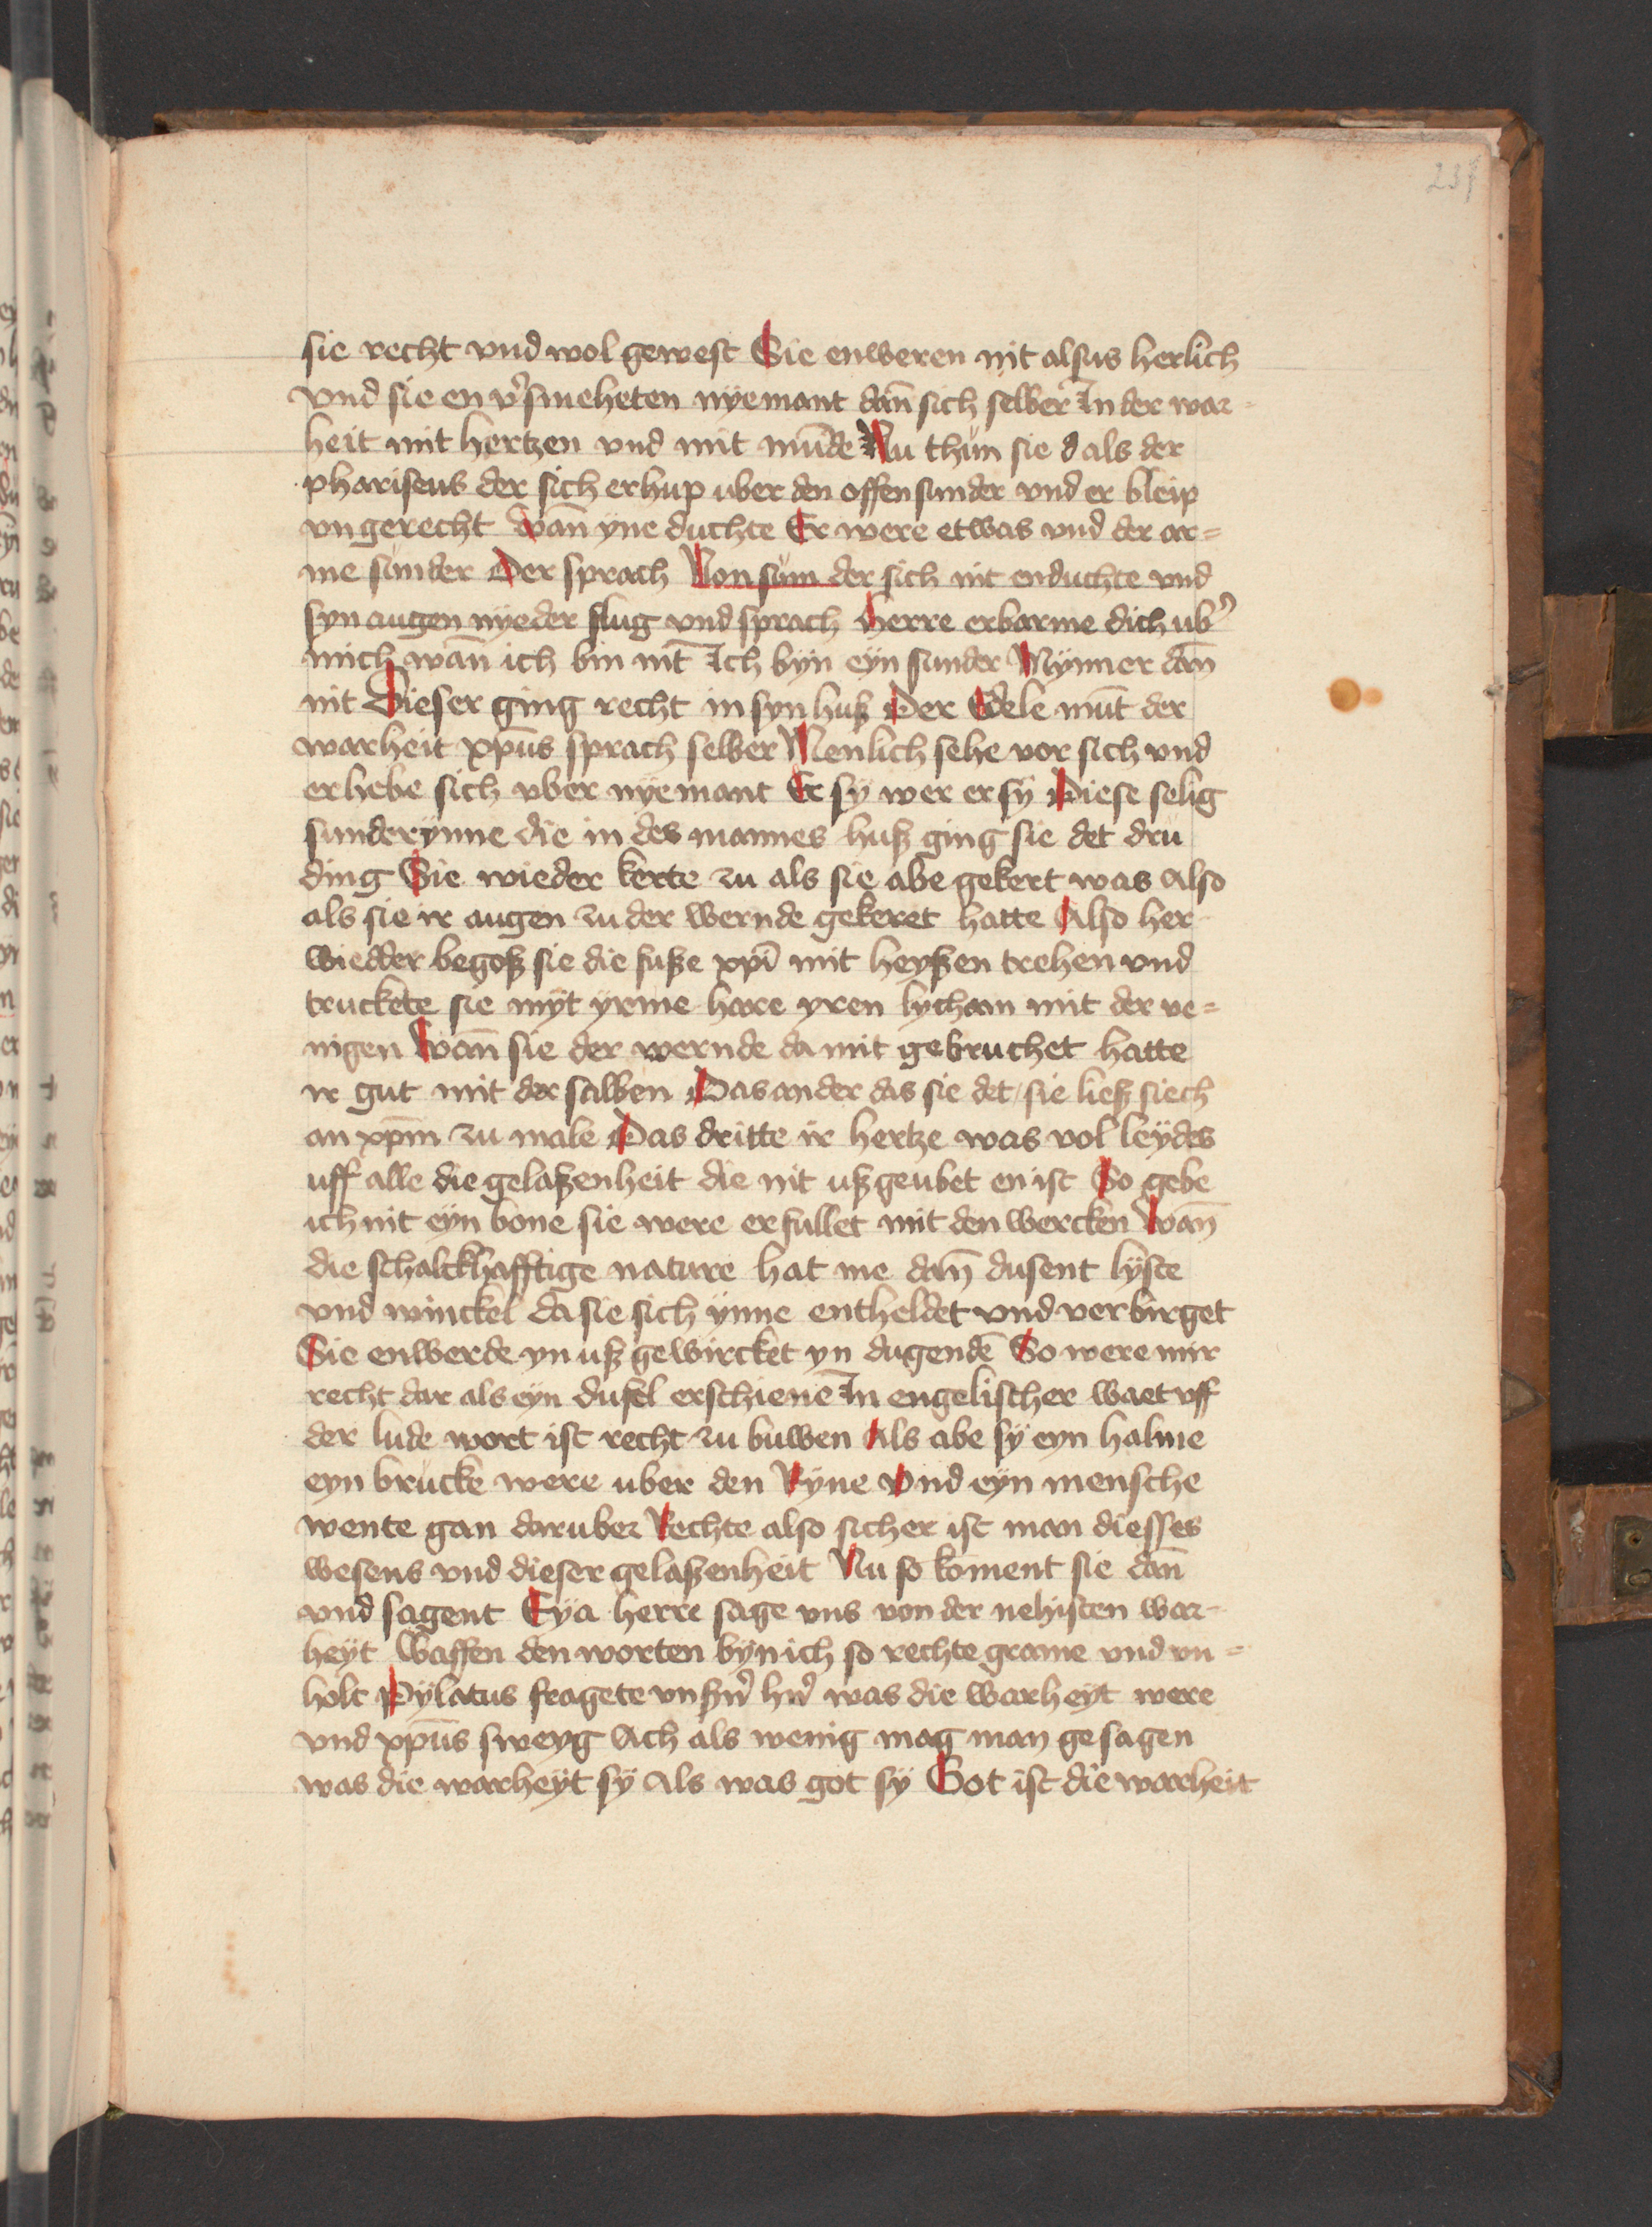 237
sie recht vnd wol gewest Sie enweren nit alsus herlich
vnd sie en v̉smeheten nyemant dan̄ sich selber In der war-
heit mit hertzen vnd mit mūde Nu thun sie d als der
phariseus der sich erhup uber den offen sunder vnd er bleip
vngerecht Wan̄ yne duchte Er were etwas vnd der ar=
me sunder Der sprach Non sum der sich nit enduchte vnd
syn augen nyeder slug vnd sprach Herre erbarme dich ub̉
mich wan̄ ich bin nit̄ Ich byn eyn sunder Mynner dan̄
nit Dieser ging recht in syn huß Der Edele mūt der
warheit xpūs sprach selber Menlich sehe vor sich vnd
erhebe sich vber nyemant Er sy wer er sy Diese selig
sunderynne die in des mannes huß ging sie det dru
ding Sie wieder kerte zu als sie abe gekert was Also
als sie ir augen zu der wernde gekeret hatte Also her
wiedder begoß sie die fuße xpi̅ mit heyßen trehen vnd
truckete sie myt yrme hare yren lycham mit der ve=
nigen Wan̄ sie der wernde da mit gebruchet hatte
ir gut mit der salben Das ander das sie det / sie ließ siech
an xpm̄ zu male Das dritte ir hertze was vol leydes
uff alle die gelaßenheit die nit ußgeubet en ist So gebe
ich nit eyn bone sie were erfullet mit den wercken Wan̄
die schalckhafftige nature hat me dan̄ dusent lyste
vnd winckel da sie sich ynne entheldet vnd verbirget
Sie enwerde yn uß gewircket yn dugendē So were mir
recht dar als eyn dufel erschienē In engelischer waet vff
der lude wort ist recht zu buwen Als abe sy eyn halme
eyn brucke were uber den Ryne Vnd eyn mensche
wente gan daruber Rechte also sicher ist man diesses
wesens vnd dieser gelaßenheit Nu so koment sie dan̄
vnd sagent Eya herre sage vns von der nehisten war-
heyt Waffen den worten byn ich so rechte grame vnd vn=
holt Pylatus fragete vnßn̉ hn̉ was die warheyt were
vnd xpūs sweyg Ach als wenig mag man gesagen
was die warheyt sy Als was got sy Got ist die warheit